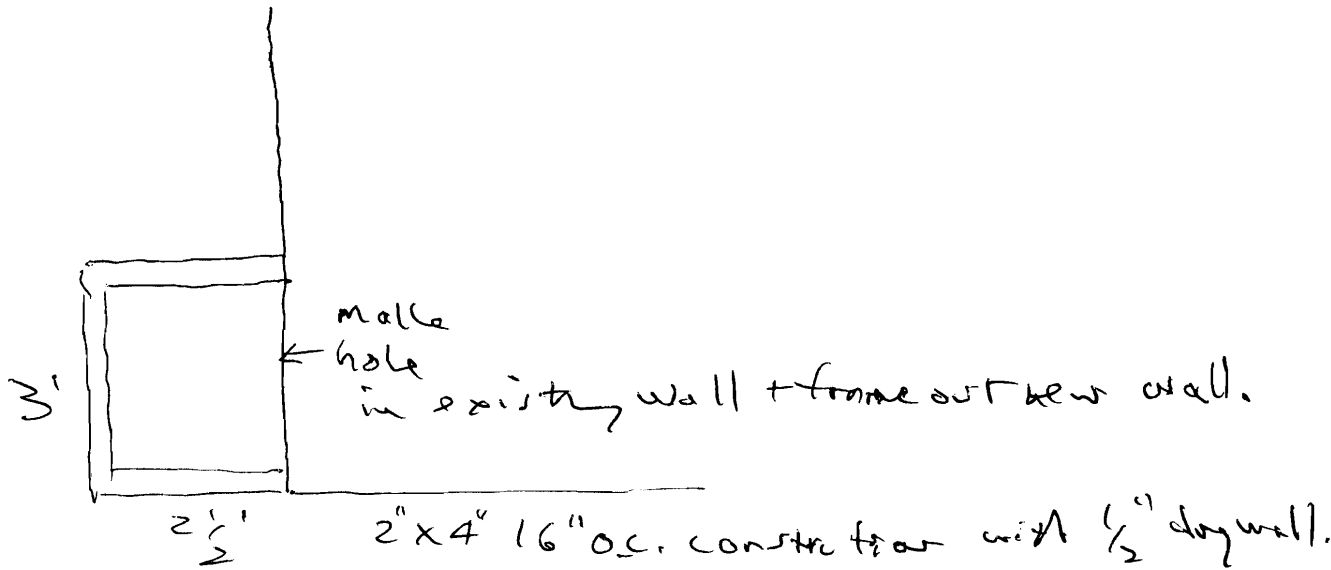 make
hole
in existing wall + frame out new wall.
3'
2 1/2'
2"x4" 16" O.C. construction with 1/2" drywall.